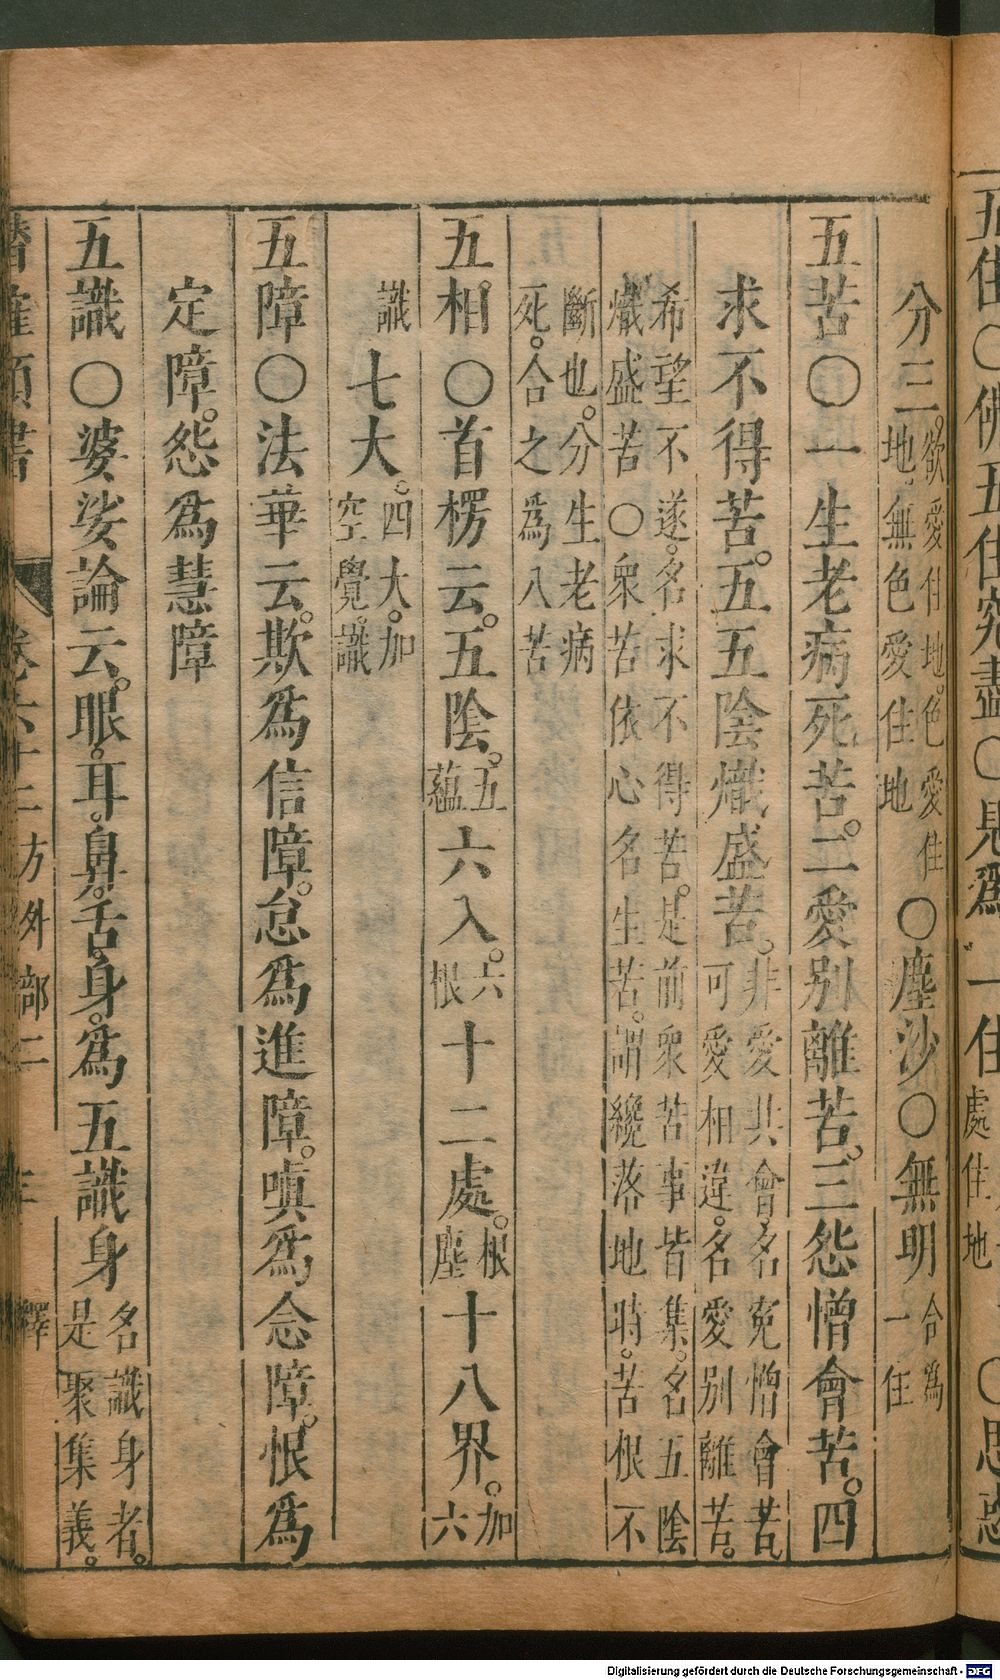 五住〇佛五住究盡〇見爲一住處住地〇思惑
分三。欲愛住地。色愛住地。無色愛住地〇塵沙〇無明合爲一住
五苦〇一生老病死苦。二愛別離苦。三怨憎會苦。四
求不得苦。五五陰熾盛苦。非愛共會。名寃憎會苦。可愛相違。名愛別離苦。
希望不遂。名求不得苦。是前衆苦事皆集。名五陰
熾盛苦〇衆苦依心名生苦。謂纔落地時。苦根不
斷也。分生老病
死。合之爲八苦
五相〇首楞云。五陰。五蘊六入。六根十二處。根塵十八界。加六
識七大。四大。加空覺。識
五障〇法華云。欺爲信障。怠爲進障。嗔爲念障。恨爲
定障。怨爲慧障
五識〇婆娑論云。眼。耳。鼻。舌。身。爲五識身名識身者。是聚集義。
潛確類書 卷六十三方外部二 三 釋
Digitalisierung gefördert durch die Deutsche Forschungsgemeinschaft - DFG